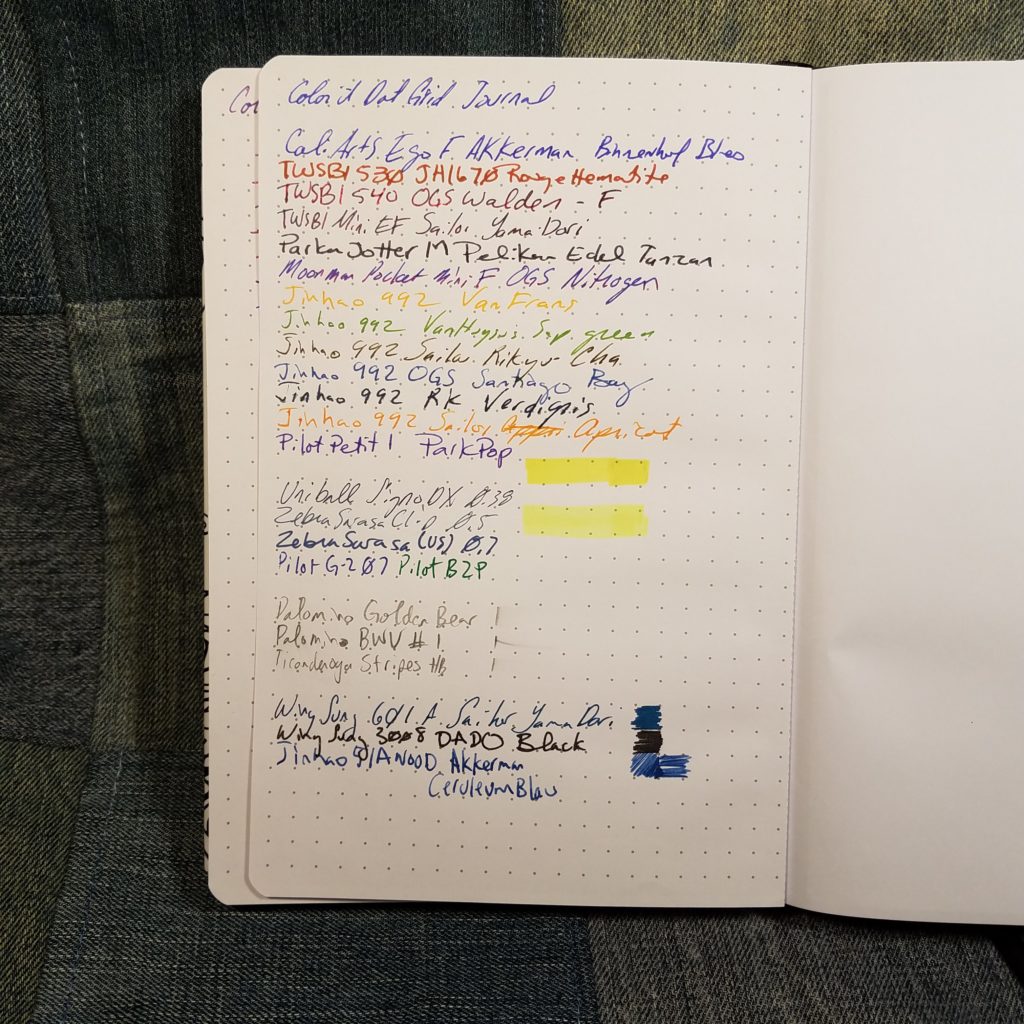 Color it Dot Grid Journal
Cali Arts Ego F Akkerman Binnenhof Blues
TWSBI 530 JH1670 Rouge Hematite
TWSBI 540 OGS Walden - F
TWSBI Mini EF Sailor Yama Dori
Parker Jotter M Pelikan Edel Tanzan
Moonman Pocket Mini F OGS Nitrogen
Jinhao 992 Van Frans
Jinhao 992 Sap green
Jinhao 992 Sailor Rikyu-Cha
Jinhao 992 OGS Santiago Bay
Jinhao 992 RK Verdigris
Jinhao 992 Sailor Apricot
Pilot Petit 1 ParkPop
Uniball Signo DX 0.38
Zebra Sarasa Clip 0.5
Zebra Sarasa (US) 0.7
Pilot G-2 07 Pilot B2P
Palomino Golden Bear
Palomino BWV #1
Ticonderoga Stripes HB
Wing Sung 601 A Sailor Yama Dori
Wing Sung 3008 DADO Black
Jinhao Akkerman
Ceruleum Blau